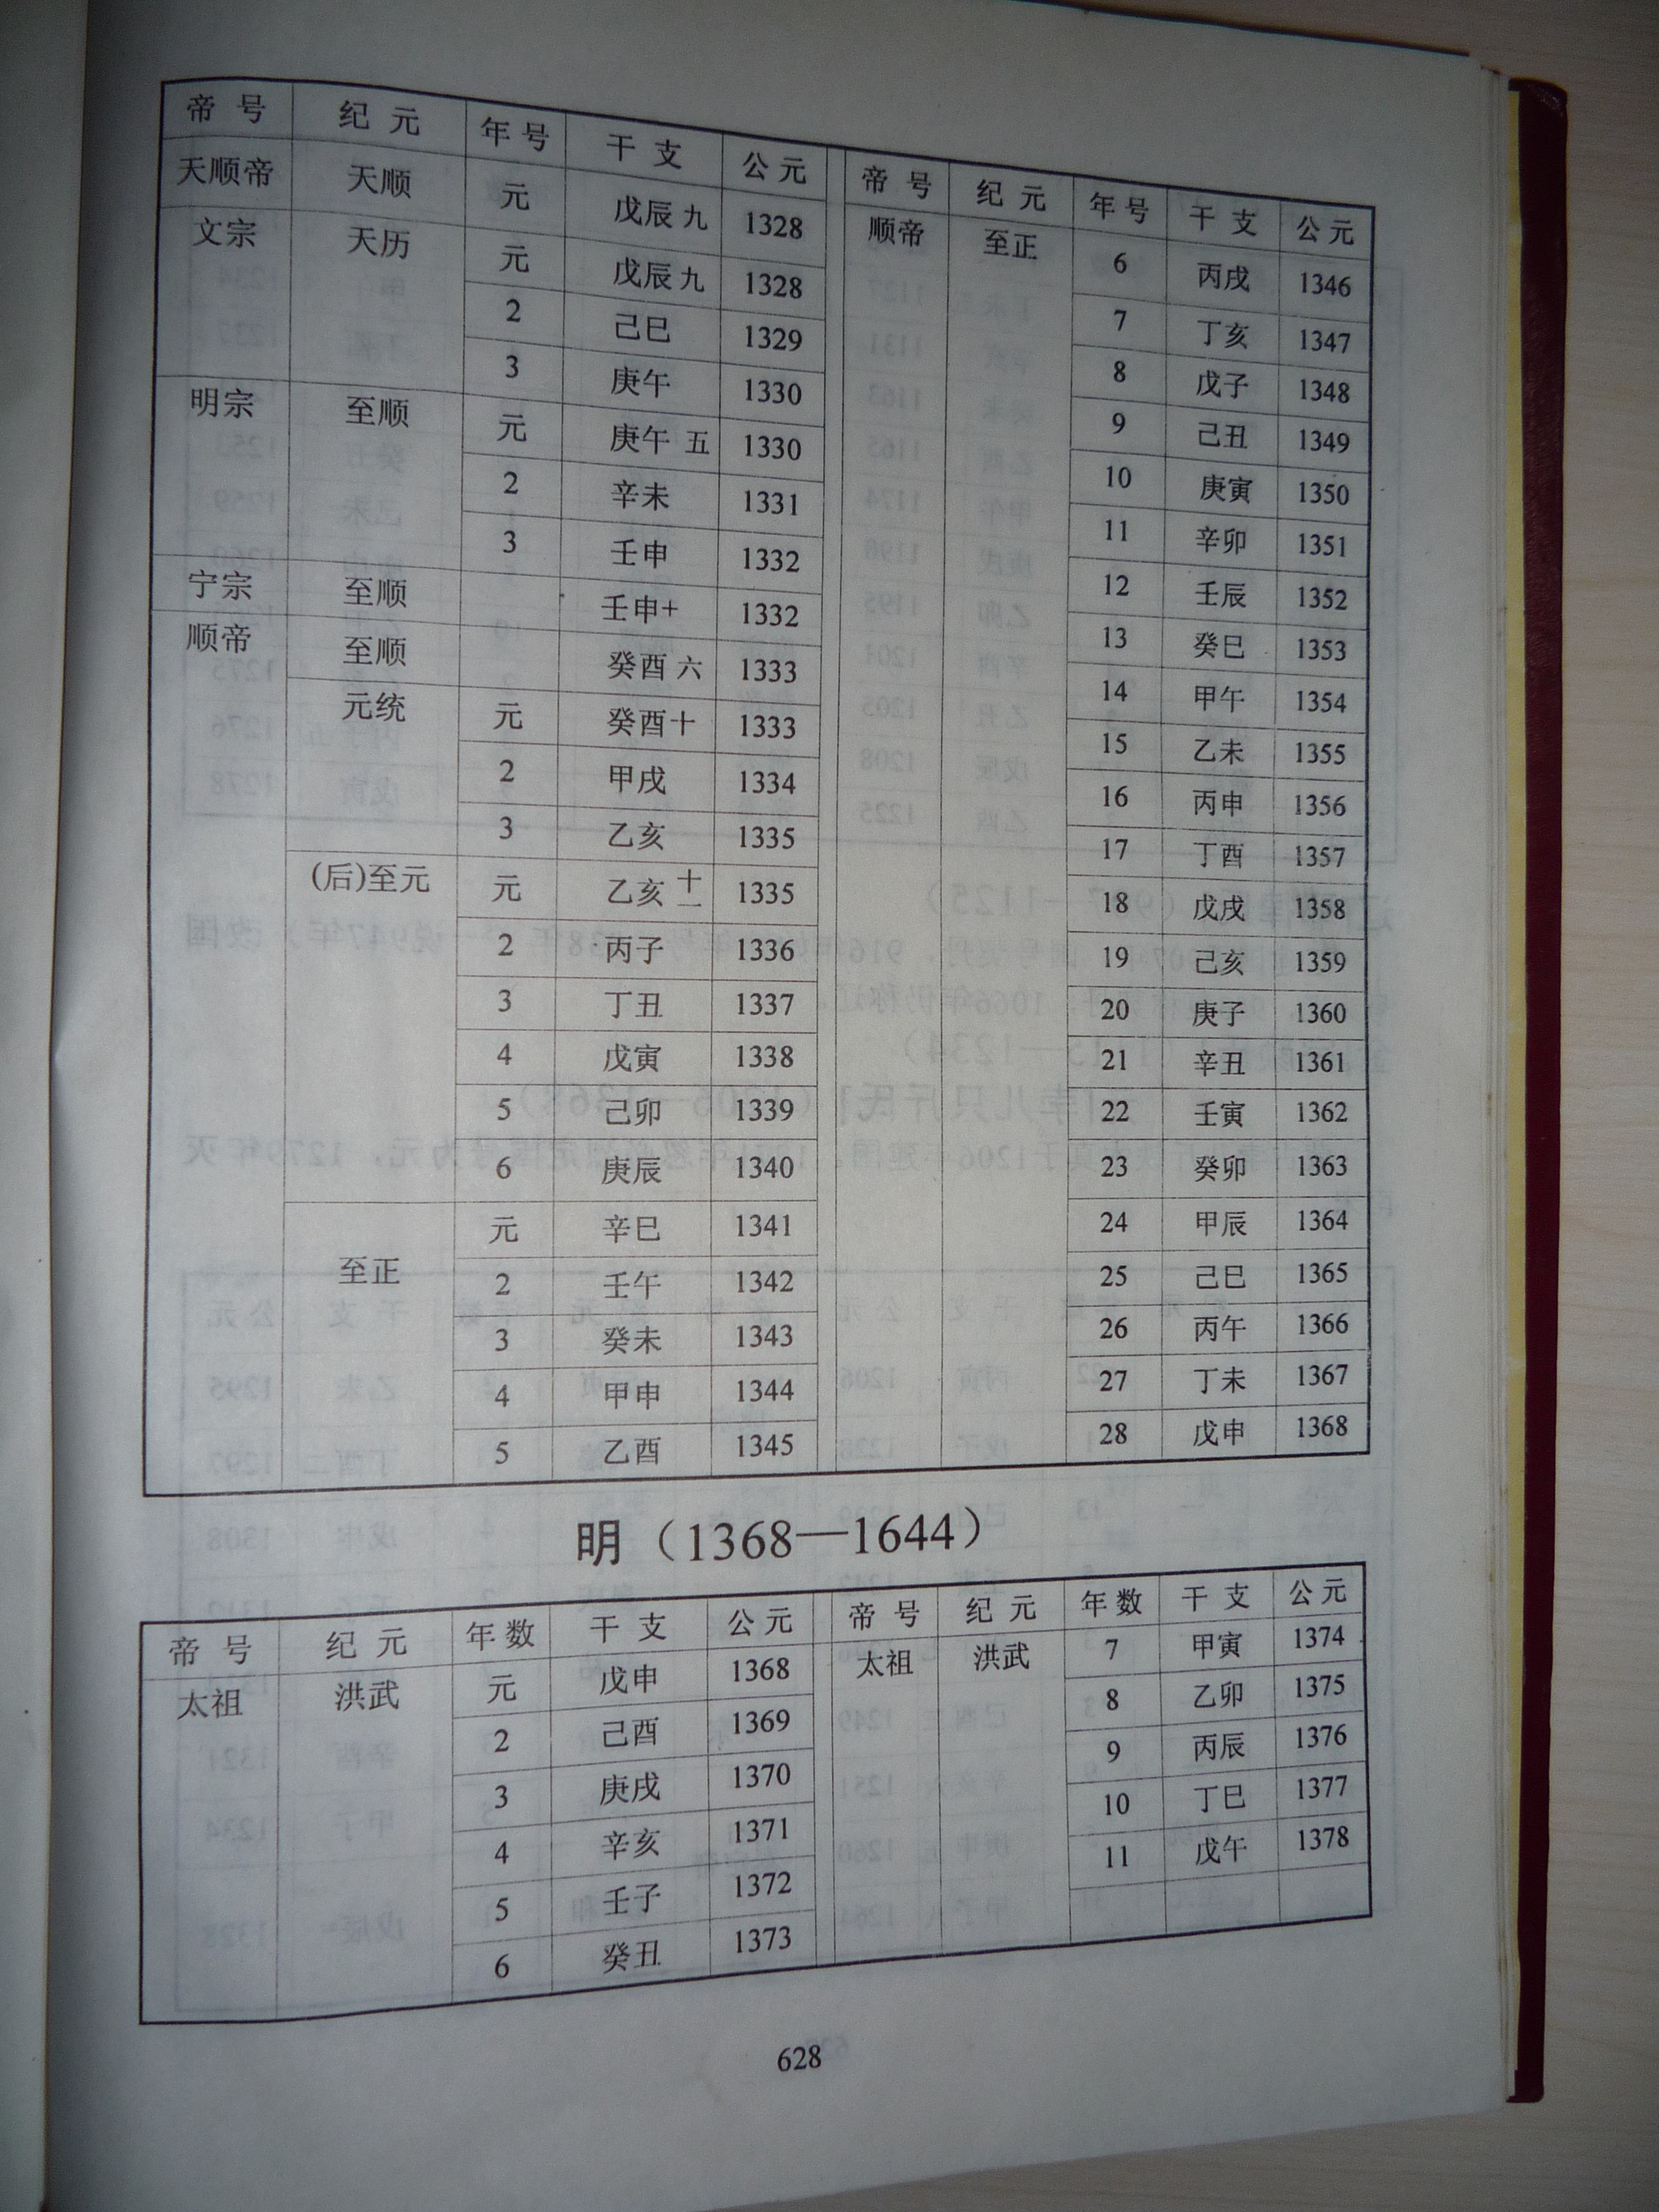 帝号 纪元 年号 干支 公元
天顺帝 天顺 元 戊辰九 1328
文宗 天历 元 戊辰九 1328
2 己巳 1329
3 庚午 1330
明宗 至顺 元 庚午五 1330
2 辛未 1331
3 壬申 1332
宁宗 至顺 壬申十 1332
顺帝 至顺 癸酉六 1333
元统 元 癸酉十 1333
2 甲戌 1334
3 乙亥 1335
(后)至元 元 乙亥十一 1335
2 丙子 1336
3 丁丑 1337
4 戊寅 1338
5 己卯 1339
6 庚辰 1340
至正 元 辛巳 1341
2 壬午 1342
3 癸未 1343
4 甲申 1344
5 乙酉 1345
帝号 纪元 年号 干支 公元
顺帝 至正 6 丙戌 1346
7 丁亥 1347
8 戊子 1348
9 己丑 1349
10 庚寅 1350
11 辛卯 1351
12 壬辰 1352
13 癸巳 1353
14 甲午 1354
15 乙未 1355
16 丙申 1356
17 丁酉 1357
18 戊戌 1358
19 己亥 1359
20 庚子 1360
21 辛丑 1361
22 壬寅 1362
23 癸卯 1363
24 甲辰 1364
25 己巳 1365
26 丙午 1366
27 丁未 1367
28 戊申 1368
明（1368—1644）
帝号 纪元 年数 干支 公元
太祖 洪武 元 戊申 1368
2 己酉 1369
3 庚戌 1370
4 辛亥 1371
5 壬子 1372
6 癸丑 1373
帝号 纪元 年数 干支 公元
太祖 洪武 7 甲寅 1374
8 乙卯 1375
9 丙辰 1376
10 丁巳 1377
11 戊午 1378
628